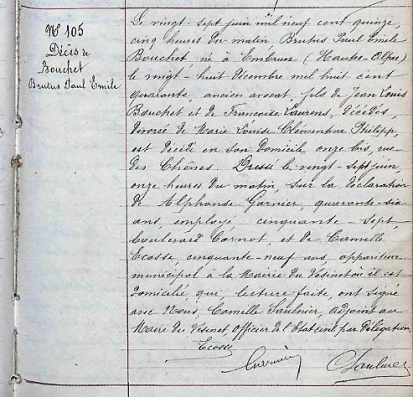 Nº 105
Décès de
Bouchet
Brutus Paul Emile
Le vingt-sept juin mil neuf cent quinze,
cinq heures du matin Brutus Paul Emile
Bouchet, né à Embrun (Hautes-Alpes)
le vingt-huit décembre mil huit cent
quarante, ancien avocat, fils de Jean Louis
Bouchet et de Françoise Laurens, décédés,
divorcé de Marie Louise Clémentine Philipp,
est décédé en son domicile onze bis, rue
des Chênes. Dressé le vingt-sept juin,
onze heures du matin, sur la déclaration
de Alphonse Garnier, quarante-six
ans, employé cinquante-sept,
boulevard Carnot, et de
Ecosse, cinquante-neuf ans, appariteur
municipal à la Mairie du Vésinet où il est
domicilié, qui, lecture faite, ont signé
avec Nous, Camille Saulnier, adjoint au
Maire du Vésinet Officier de l'Etat civil par délégation
Ecosse
Garnier
Saulnier